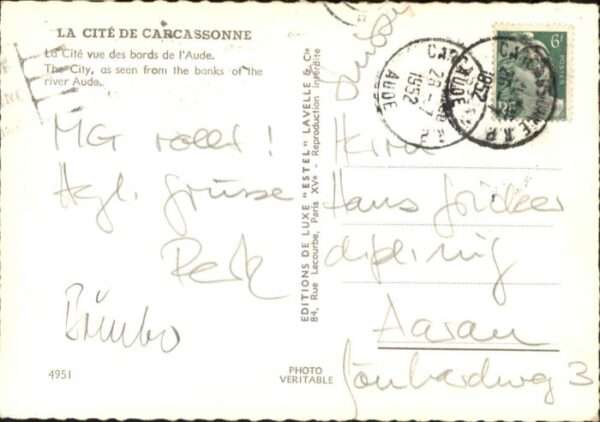 LA CITÉ DE CARCASSONNE
La Cité vue des bords de l'Aude.
The City, as seen from the banks of the
river Aude.
MG rollt!
Hzl. Grüsse
Bimbo
4951
EDITIONS DE LUXE "ESTEL" LAVELLE & Cie
84, Rue Lecourbe, Paris XVe - Reproduction interdite
PHOTO
VERITABLE
6F
POSTES
1952
AUDE
28-7
1952
AUDE
Suisse
Herrn
Hans
dipl. ing
Aarau
3